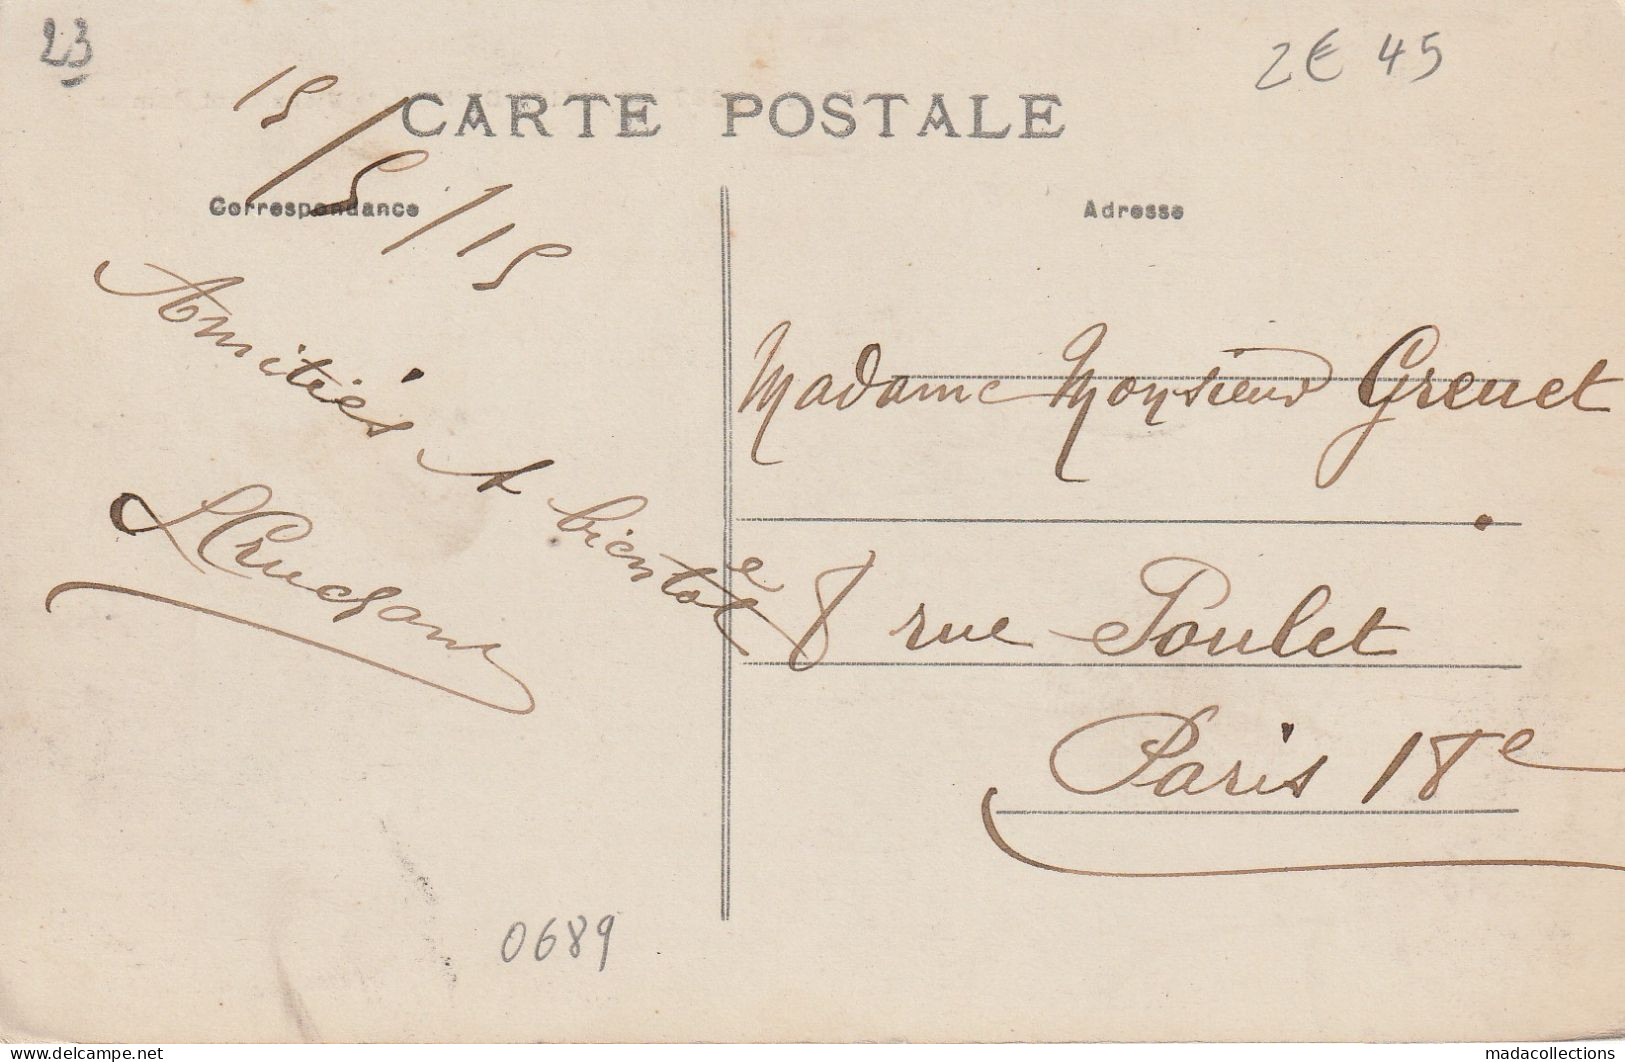 23
2€ 45
CARTE POSTALE
15/5/15
Correspondance
Adresse
Amitiés & bientot
Madame Monsieur Greuet
8e rue Poulet
Paris 18e
0689
www.delcampe.net
madacollections